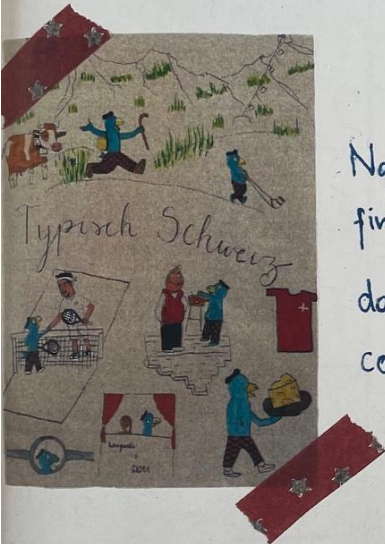 Typisch Schweiz
Na
fin
da
ce